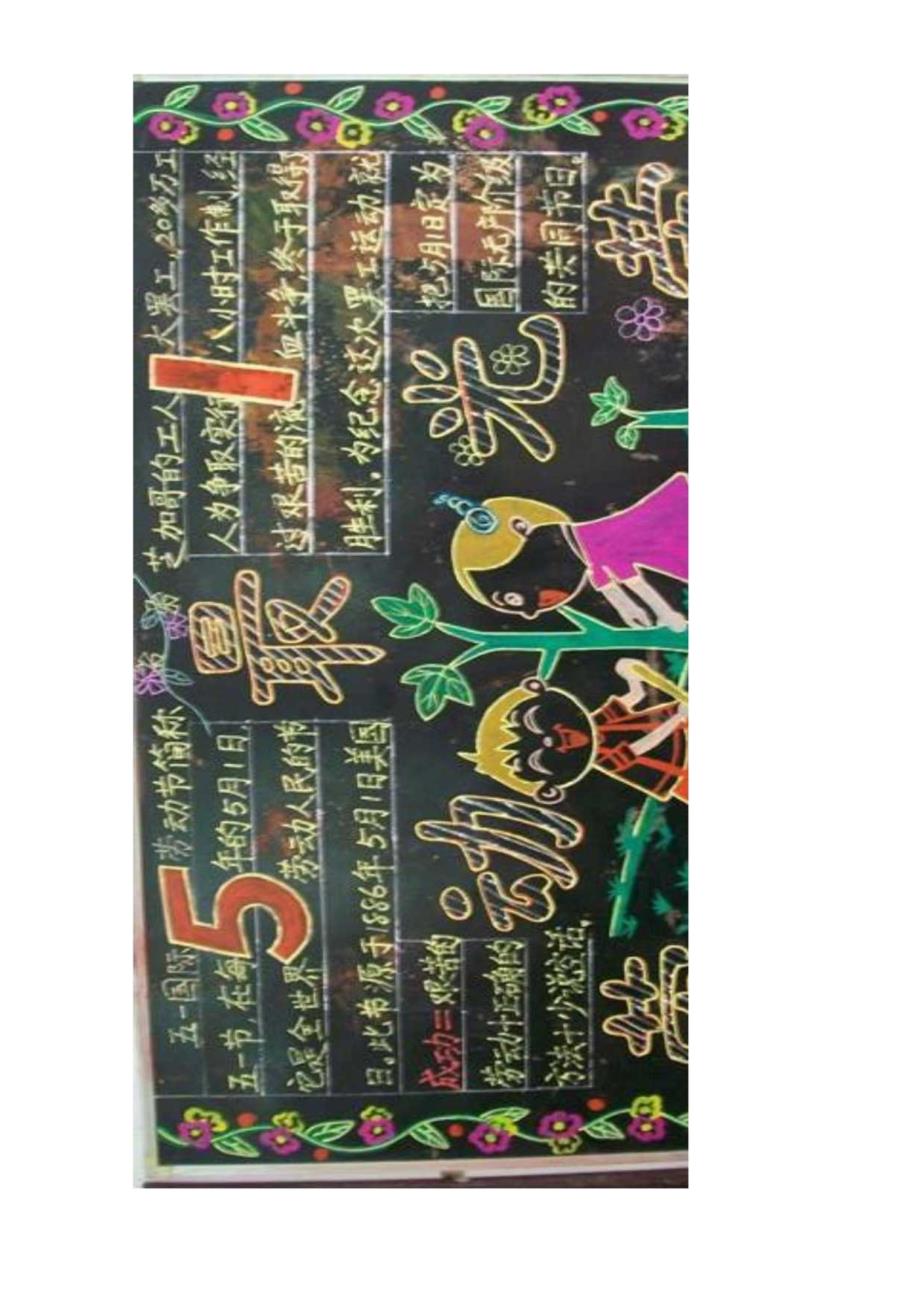 五一国际劳动节简称
五一节在每年的5月1日.
它是全世界劳动人民的节
日。此节源于1886年5月1日美国
芝加哥的工人大罢工,20多万工
人为争取实行八小时工作制,经
过艰苦的流血斗争,终于取得
胜利。为纪念这次罢工运动就
把5月1日定为
国际无产阶级
的共同节日。
5
1
成功=艰苦的
劳动+正确的
方法+少说空话.
劳动最光荣